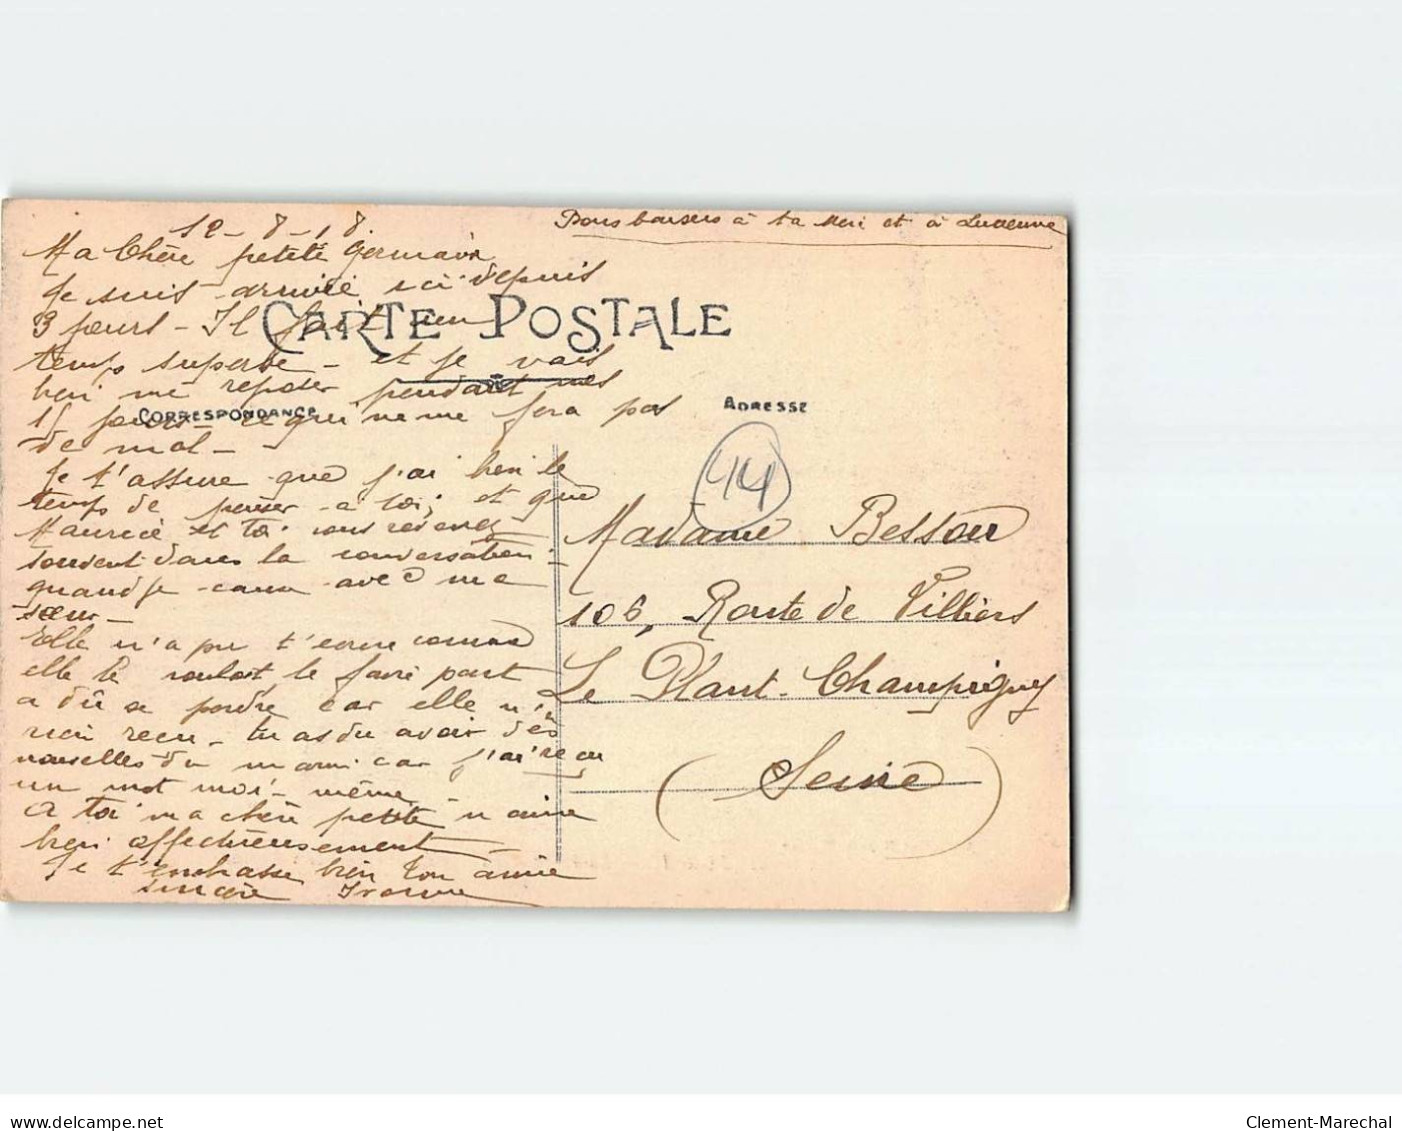 12-8-18
Bons baisers à ta Mère et à
Ma Chère petite Germaine
Je suis arrivée ici depuis
3 jours - Il fait un
temps superbe - et je vais
bien me reposer pendant mes
15 jours - ce qui ne me fera pas
de mal -
Je t'assure que j'ai bien le
temps de penser à toi, et que
Maurice et toi vous revenez
souvent dans la conversation
quand je cause avec ma
sœur -
Elle n'a pu t'écrire comme
elle le voulait le faire part
a dû se perdre car elle n'a
rien reçu - tu as dû avoir des
nouvelles de car j'ai reçu
un mot moi-même
A toi ma chère petite
bien affectueusement -
Je t'embrasse bien Ton amie
sincère Yvonne
CARTE POSTALE
CORRESPONDANCE
ADRESSE
44
Madame Besson
106, Route de Villiers
Le Plant-Champigny
(Seine)
delcampe.net
Clement-Marechal